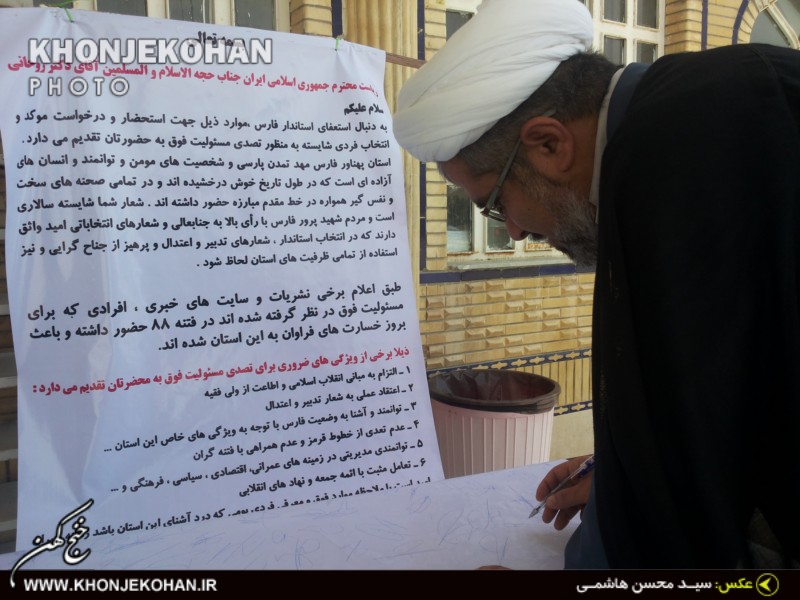 KHONJEKOHAN
PHOTO
ریاست محترم جمهوری اسلامی ایران جناب حجه الاسلام و المسلمین آقای دکتر روحانی
سلام علیکم
به دنبال استعفای استاندار فارس ،موارد ذیل جهت استحضار و درخواست موکد و
انتخاب فردی شایسته به منظور تصدی مسئولیت فوق به حضورتان تقدیم می دارد .
استان پهناور فارس مهد تمدن پارسی و شخصیت های مومن و توانمند و انسان های
آزاده ای است که در طول تاریخ خوش درخشیده اند و در تمامی صحنه های سخت
و نفس گیر همواره در خط مقدم مبارزه حضور داشته اند . شعار شما شایسته سالاری
است و مردم شهید پرور فارس با رأی بالا به جنابعالی و شعارهای انتخاباتی امید واثق
دارند که در انتخاب استاندار ، شعارهای تدبیر و اعتدال و پرهیز از جناح گرایی و نیز
استفاده از تمامی ظرفیت های استان لحاظ شود .
طبق اعلام برخی نشریات و سایت های خبری ، افرادی که برای
مسئولیت فوق در نظر گرفته شده اند در فتنه ۸۸ حضور داشته و باعث
بروز خسارت های فراوان به این استان شده اند.
ذیلا برخی از ویژگی های ضروری برای تصدی مسئولیت فوق به محضرتان تقدیم می دارد :
۱ ـ التزام به مبانی انقلاب اسلامی و اطاعت از ولی فقیه
۲ ـ اعتقاد عملی به شعار تدبیر و اعتدال
۳ ـ توانمند و آشنا به وضعیت فارس با توجه به ویژگی های خاص این استان ...
۴ ـ عدم تعدی از خطوط قرمز و عدم همراهی با فتنه گران
۵ ـ توانمندی مدیریتی در زمینه های عمرانی، اقتصادی ، سیاسی ، فرهنگی و ...
۶ ـ تعامل مثبت با ائمه جمعه و نهاد های انقلابی
با ملاحظه موارد فوق و معرفی فردی بومی که درد آشنای این استان باشد
خنج کهن
WWW.KHONJEKOHAN.IR
عکس: سید محسن هاشمی